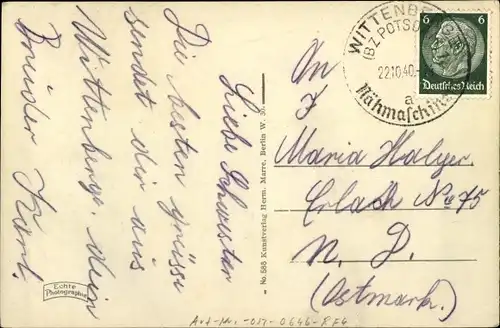 Liebe Schwester
Die besten grüsse
sendet dir aus
Wittenberge. dein
Bruder Karl.
Echte
Photographie
No. 585 Kunstverlag Herm. Marre, Berlin W. 30.
WITTENBE
(BZ. POTSD
22.10.40.
a
Nähmaschin
6 6
Deutsches Reich
An
F
Maria Halger.
Erlach No 75
N. D.
(Ostmark.)